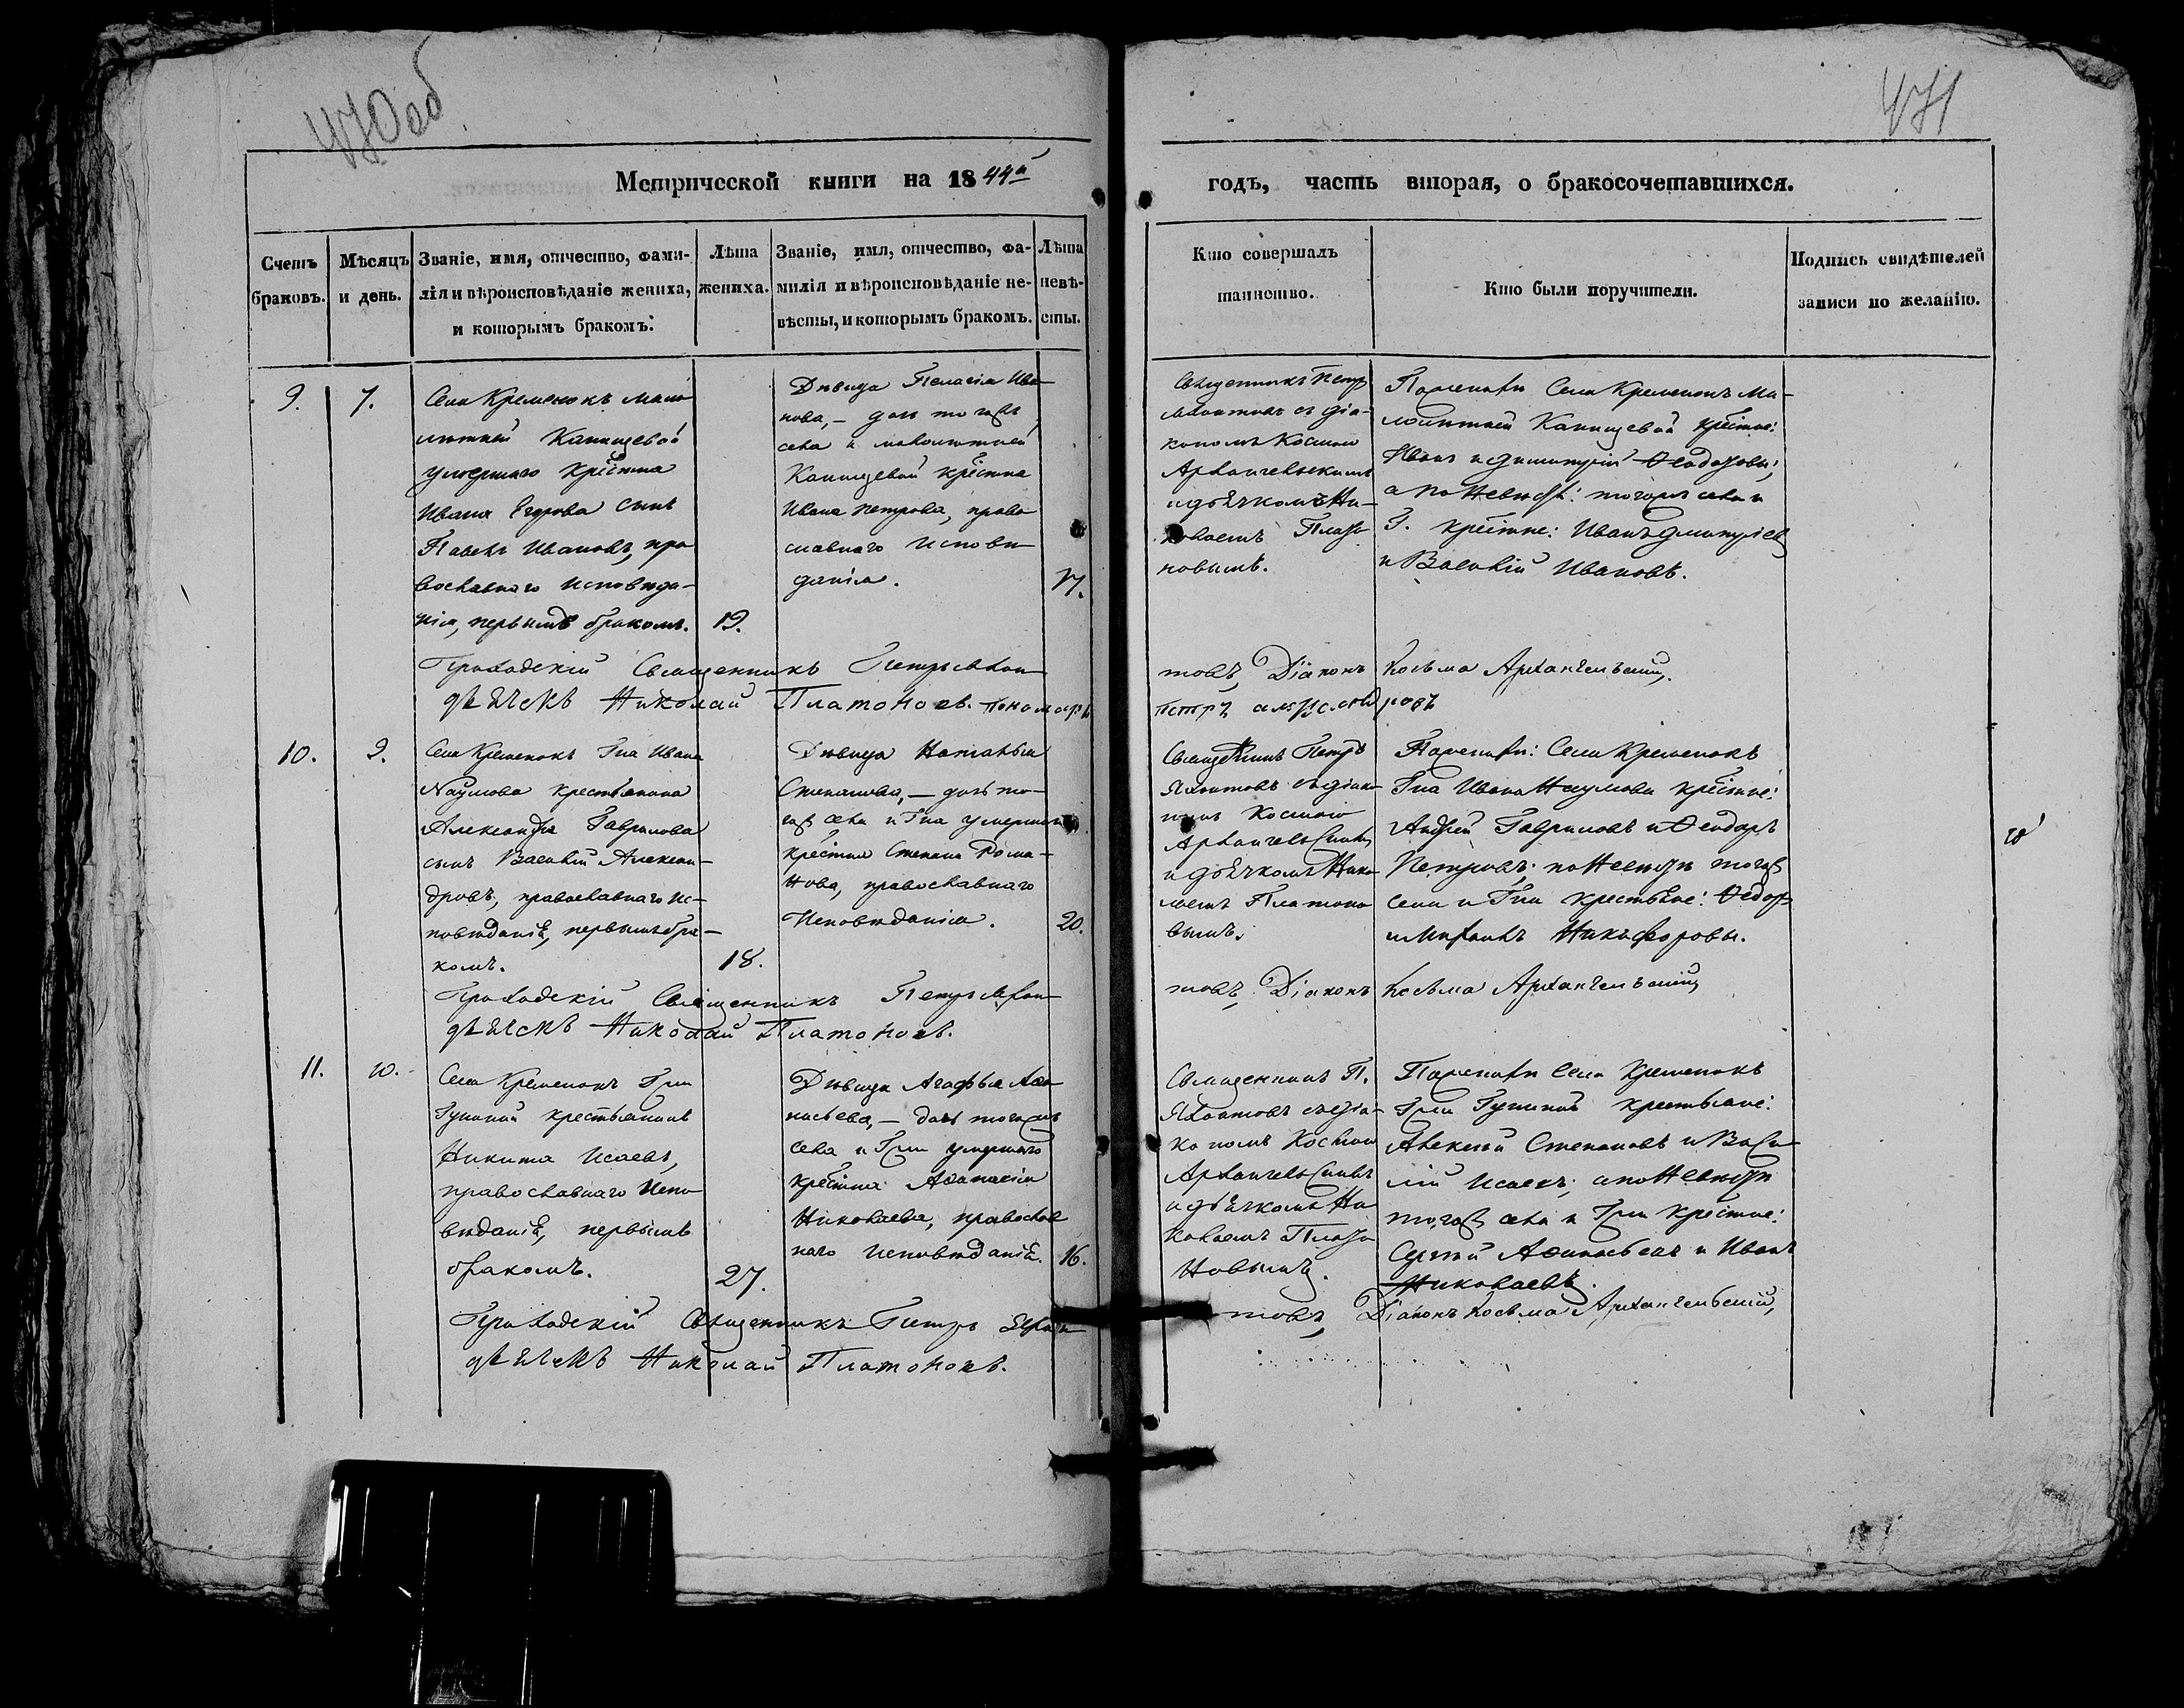 470об
471
Метрической книги на 1844й
годъ, часть вторая, о бракосочетавшихся.
Счетъ браковъ.
Мѣсяцъ и день.
Званіе, имя, отчество, фами-
лія и вѣроисповѣданіе жениха,
и которымъ бракомъ.
Лѣта
жениха.
Званіе, имя, отчество, фа-
милія и вѣроисповѣданіе не-
вѣсты, и которымъ бракомъ.
Лѣта
невѣ-
сты.
Кто совершалъ
таинство.
Кто были поручители.
Подпись свидѣтелей
записи по желанію.
9.
7.
Села Кременокъ мало
лѣтней Канищевой
умершаго крестна
Ивана Егорова сынъ
Павелъ Ивановъ, пра
вославнаго исповѣда-
нія, первымъ бракомъ.
19.
Дѣвица Пелагія Ива-
нова, — дочь тогожъ
села и малолѣтней
Канищевой крестна
Ивана Петрова, право
славнаго исповѣ
данія.
17.
Священникъ Петръ
съ діа-
кономъ Космою
Архангельскимъ
и дьячкомъ Ни-
колаемъ Плато
новымъ.
По женихѣ Села Кременокъ Ма-
лолѣтней Канищевой крестне:
Иванъ и Димитрій Ѳеодоровы;
а по невѣстѣ: тогожъ села и
Г. крестне: Иванъ Дмитріевъ
и Василій Ивановъ.
Приходскій Священникъ Петръ
товъ, Діаконъ Косьма Архангельскій,
дьячекъ Николай Платоновъ. пономарь
Петръ
10.
9.
Села Кременокъ Гна Ивана
Наумова крестьянина
Александра Гаврилова
сынъ Василій Алексан-
дровъ, православнаго ис-
повѣданія, первымъ бра-
комъ.
18.
Дѣвица Наталья
Степанова, — дочь то-
гожъ села и Гна умершаго
крестна Степана Рома-
нова, православнаго
Исповѣданія.
20.
Священникъ Петръ
съ діако-
номъ Космою
Архангельскимъ
и дьячкомъ Нико-
лаемъ Платоно
вымъ.
По женихѣ: Села Кременокъ
Гна Ивана Наумова крестне:
Андрей Гавриловъ и Ѳеодоръ
Петровъ; по невѣстѣ тогожъ
села и Гна крестьяне: Ѳедоръ
и Михаилъ Никифоровы.
Приходскій Священникъ Петръ
товъ, Діаконъ Косьма Архангельскій
дьячекъ Николай Платоновъ.
11.
10.
Села Кременокъ Гжи
крестьянинъ
Никита Исаевъ,
православнаго Испо
вѣданія, первымъ
бракомъ.
27.
Дѣвица Агафья Аѳа
насьева, — дочь тогожъ
села и Гжи умершаго
крестна Аѳанасія
Николаева, православ
наго исповѣданія.
16.
Священникъ П.
съ діа-
кономъ Космою
Архангельскимъ
и дьячкомъ Ни
колаемъ Плато
новымъ.
По женихѣ Села Кременокъ
Гжи крестьяне:
Алексѣй Степановъ и Васи-
лій Исаевъ; а по невѣстѣ
тогожъ села и Гжи крестне:
Сергѣй Аѳанасьевъ и Иванъ
Николаевъ.
Приходскій Священникъ Петръ
товъ, Діаконъ Косьма Архангельскій,
дьячекъ Николай Платоновъ.